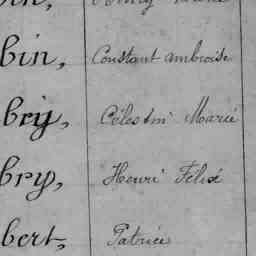 bin, Constant Ambroise
bry, Célestin Marie
bry, Henri Félix
bert, Patrice